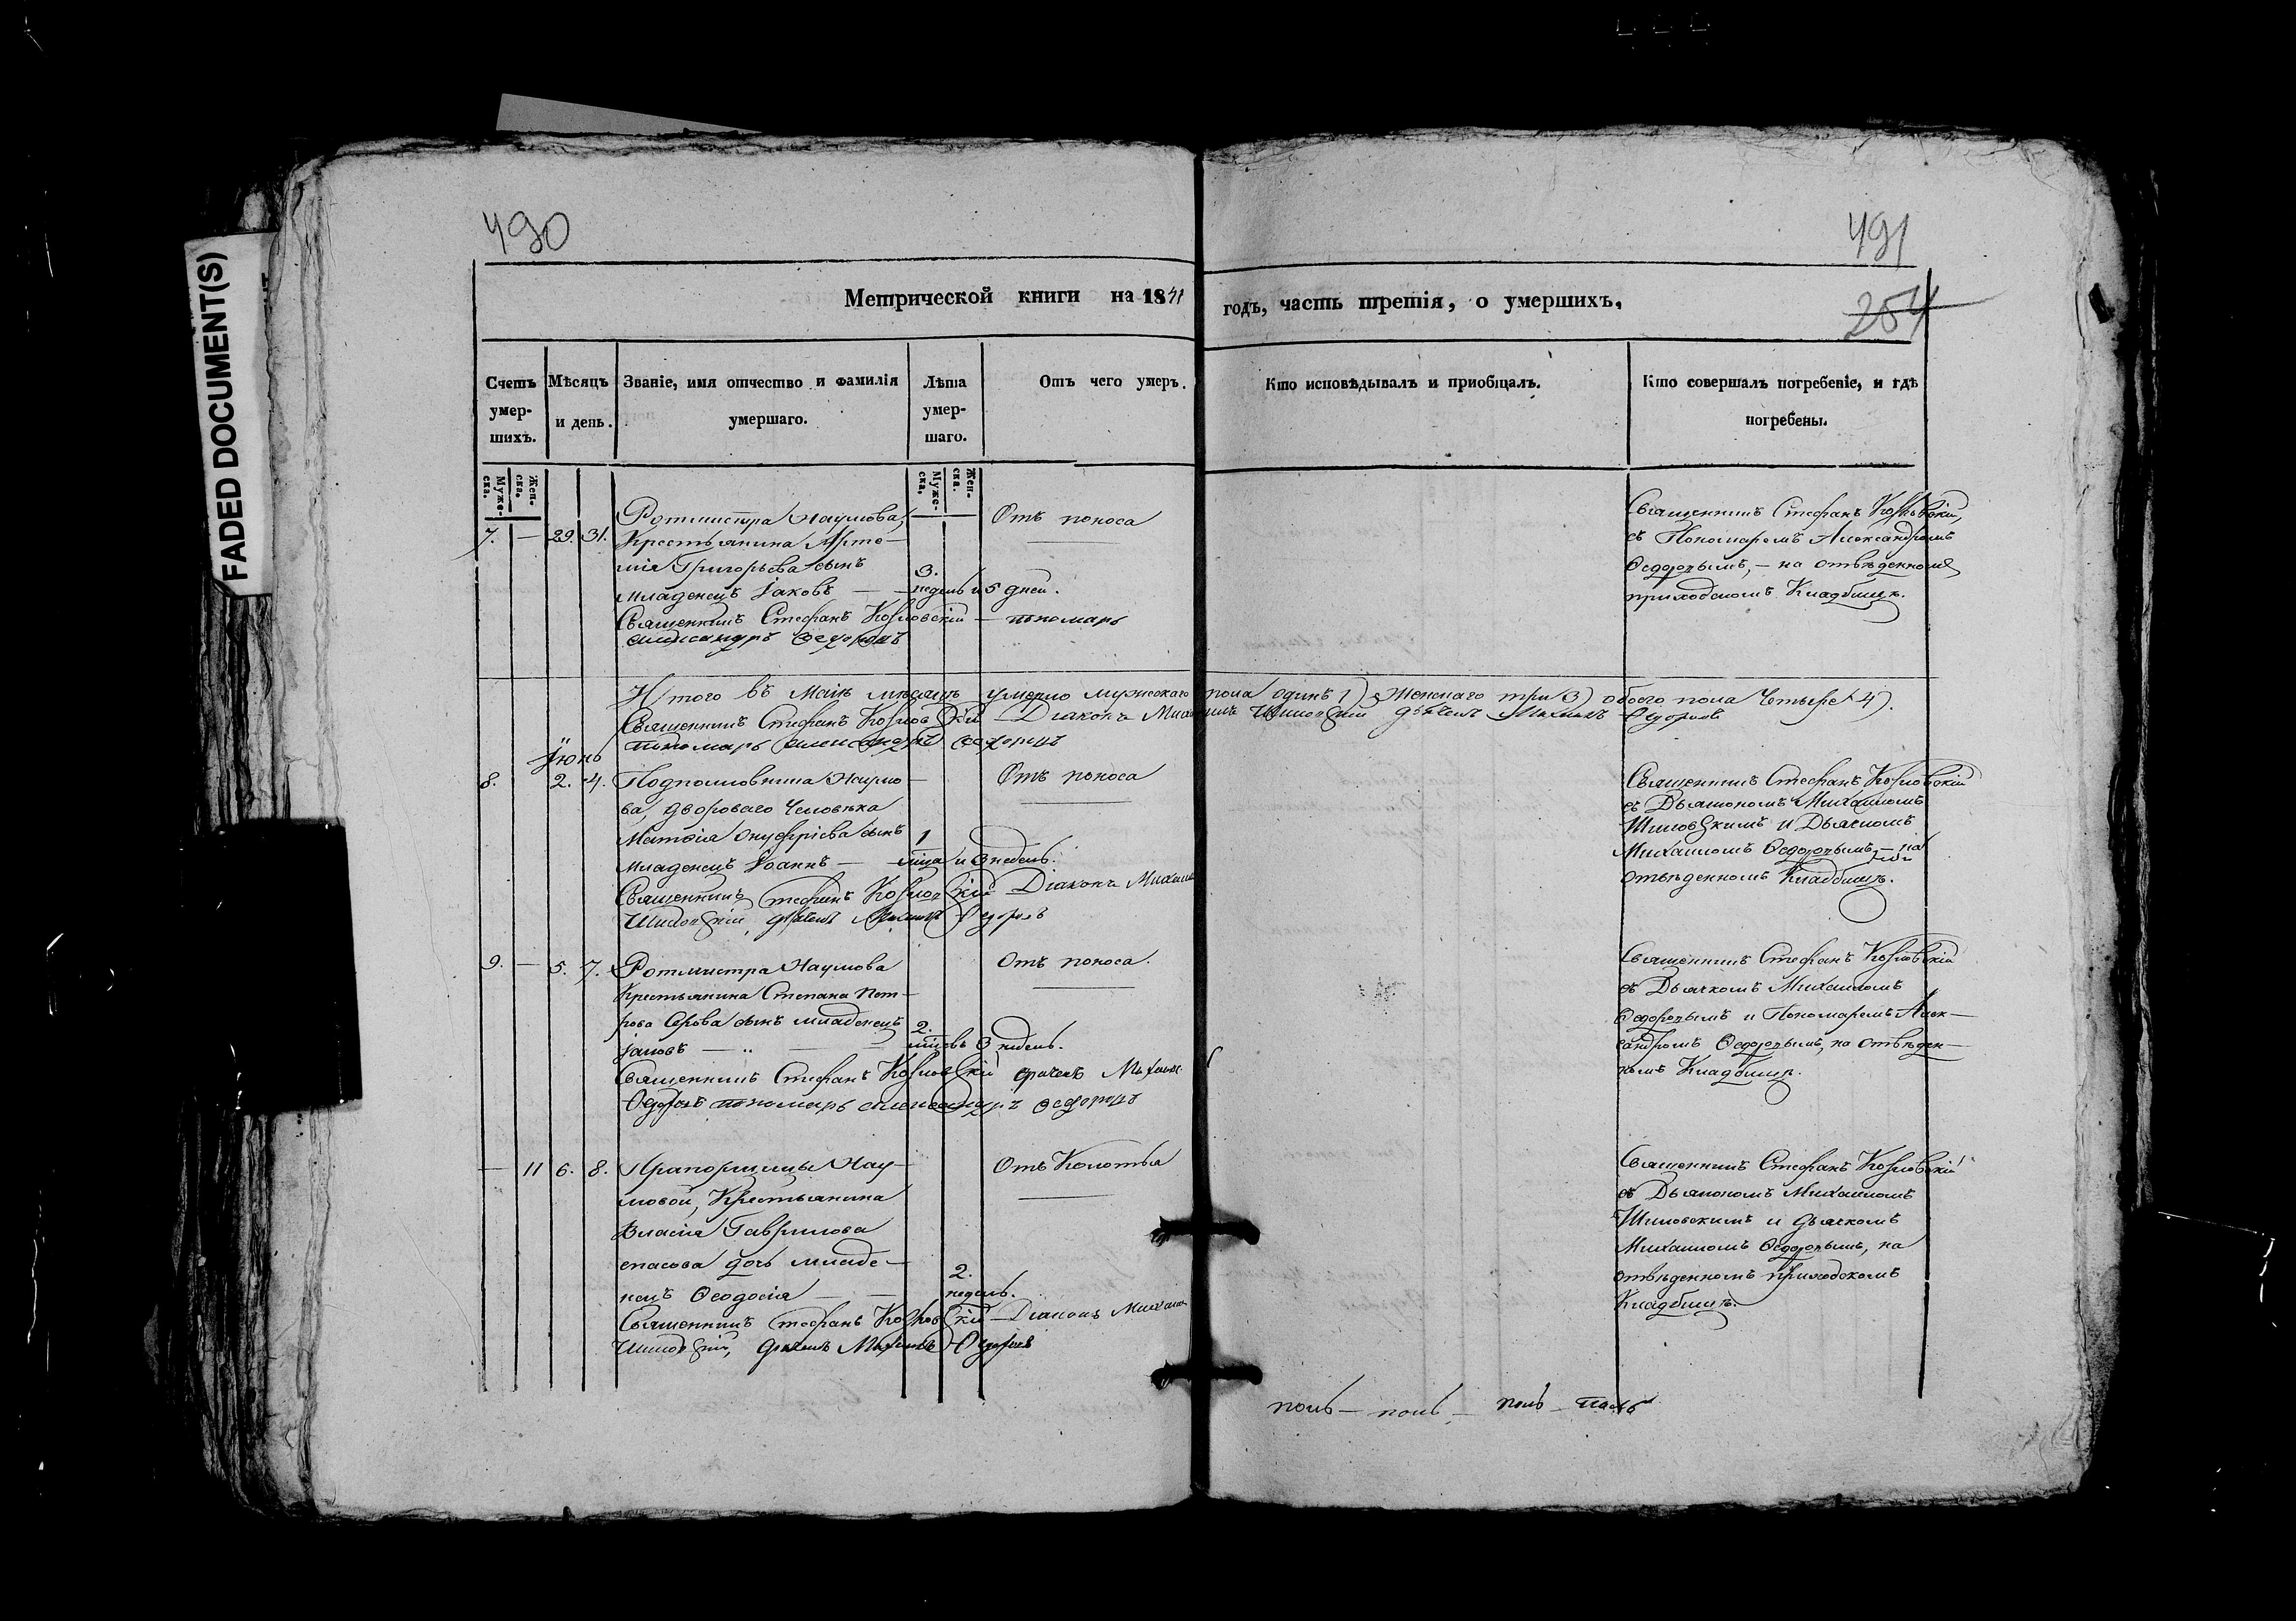 FADED DOCUMENT(S)
490
491
254
Метрической книги на 1841 годъ, часть третія, о умершихъ.
Счетъ умер-
шихъ.
Мѣсяцъ
и день.
Званіе, имя отчество и фамилія
умершаго.
Лѣта
умер-
шаго.
Отъ чего умеръ.
Кто исповѣдывалъ и приобщалъ.
Кто совершалъ погребеніе, и гдѣ
погребены.
Муже-
ска.
Жен-
ска.
Муже-
ска.
Жен-
ска.
7. — 29. 31.
Ротмистра Наумова,
Крестьянина Арте-
мія Григорьева сынъ
младенецъ Іаковъ —
3.
недель и 5 дней.
Отъ поноса
Священникъ Стефанъ Козловскій — пономарь
Александръ Федоровъ
Священникъ Стефанъ Козловскій,
съ Пономаремъ Александромъ
Ѳедоровымъ, — на отвѣденномъ
приходскомъ Кладбищѣ.
Итого въ Маіѣ мѣсяцѣ умерло мужескаго пола одинъ 1) Женскаго три 3) обоего пола Четыре 4).
Священникъ Стефанъ Козловскій Діаконъ Михаилъ Шиловскій дьячекъ Михаилъ Ѳедоровъ
пономарь Александръ Ѳедоровъ
Іюнь
8. 2. 4.
Подполковника Наумо-
ва, двороваго Человѣка
Матѳія Онуфріева сынъ
младенецъ Іоаннъ —
1
мѣца и 3 недель.
Отъ поноса
Священникъ Стефанъ Козловскій Діаконъ Михаилъ
Шиловскій, дьячекъ Михаилъ Ѳедоровъ
Священникъ Стефанъ Козловскій
съ Дьякономъ Михаиломъ
Шиловскимъ и Дьячкомъ
Михаиломъ Ѳедоровымъ, — на
отвѣденномъ Кладбищѣ.
9. — 5. 7.
Ротмистра Наумова
Крестьянина Степана Пет-
рова сынъ младенецъ
Іаковъ —
2.
мѣсвъ 3 недель.
Отъ поноса.
Священникъ Стефанъ Козловскій дьячекъ Михаилъ
Ѳедоровъ пономарь Александръ Ѳедоровъ
Священникъ Стефанъ Козловскій
съ Дьячкомъ Михаиломъ
Ѳедоровымъ и Пономаремъ Алек-
сандромъ Ѳедоровымъ, на отвѣден-
номъ Кладбищѣ.
— 11 6. 8.
Прапорщицы Нау-
мовой, Крестьянина
Власія Гаврилова
дочь младе-
нецъ Ѳеодосія —
2.
недель.
Отъ Колотья
Священникъ Стефанъ Козловскій Діаконъ Михаилъ
Шиловскій, дьячекъ Михаилъ Ѳедоровъ
Священникъ Стефанъ Козловскій
съ Дьякономъ Михаиломъ
Шиловскимъ и дьячкомъ
Михаиломъ Ѳедоровымъ, на
отвѣденномъ приходскомъ
Кладбищѣ.